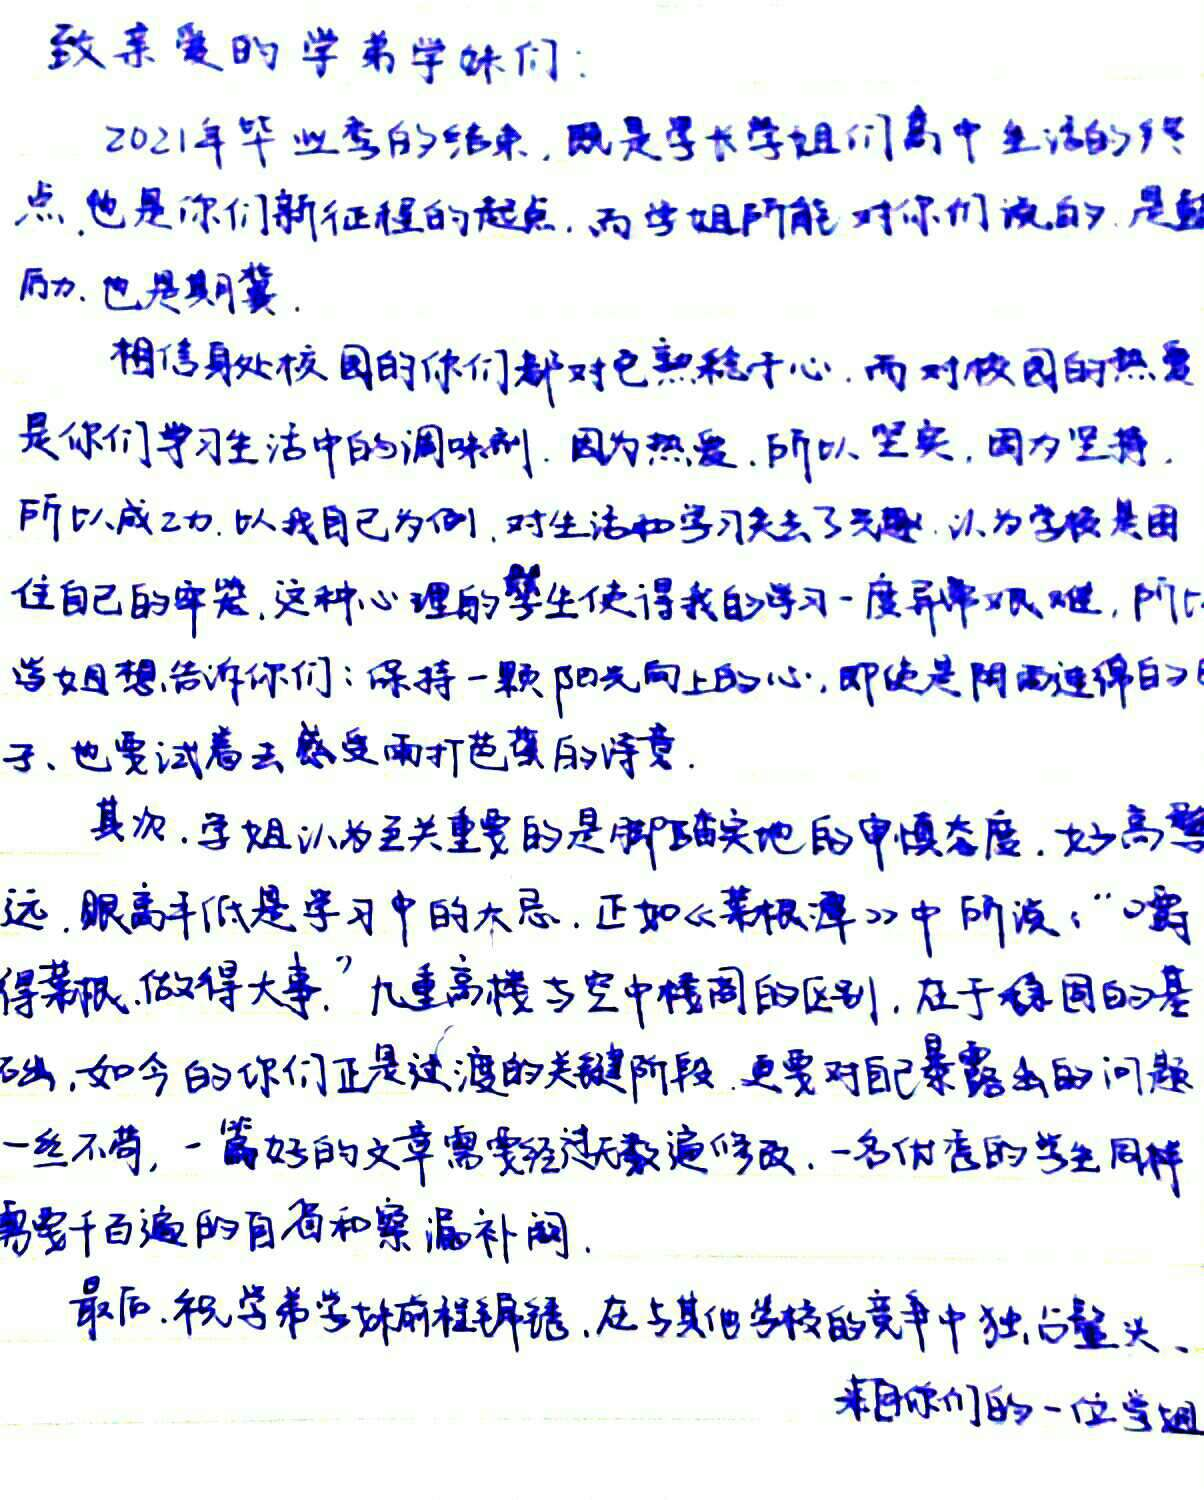 致亲爱的学弟学妹们：
2021年毕业季的结束，既是学长学姐们高中生活的终
点，也是你们新征程的起点，而学姐所能对你们说的，是鼓
励，也是期冀.
相信身处校园的你们都对它熟稔于心，而对校园的热爱
是你们学习生活中的调味剂.因为热爱，所以坚实，因为坚持，
所以成功.以我自己为例，对生活和学习失去了兴趣，认为学校是困
住自己的牢笼，这种心理的孳生使得我的学习一度异常艰难，所以
学姐想告诉你们：保持一颗阳光向上的心，即使是阴雨连绵的日
子、也要试着去感受雨打芭蕉的诗意.
其次，学姐认为至关重要的是脚踏实地的审慎态度，好高骛
远，眼高手低是学习中的大忌.正如《菜根谭》中所说：“嚼
得菜根，做得大事.”九重高楼与空中楼阁的区别，在于稳固的基
础，如今的你们正是过渡的关键阶段，更要对自己暴露出的问题
一丝不苟，一篇好的文章需要经过无数遍修改，一名优秀的学生同样
需要千百遍的自省和察漏补阙.
最后，祝学弟学妹前程锦绣，在与其他学校的竞争中独占鳌头、
来自你们的一位学姐